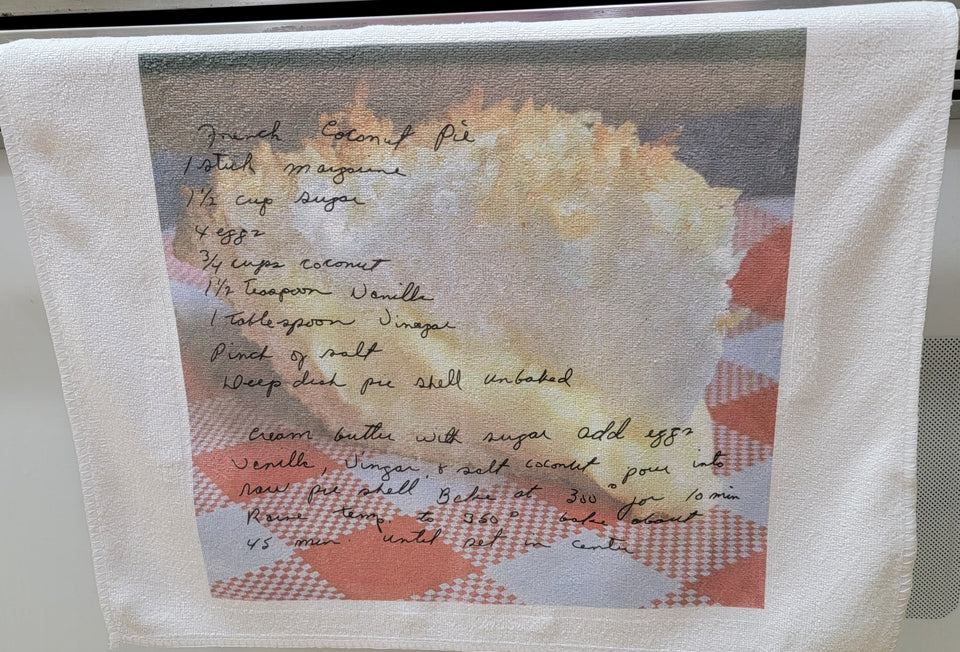 French Coconut Pie
1 stick margarine
1 1/2 cup sugar
4 eggs
3/4 cups coconut
1 1/2 Teaspoon Vanilla
1 Tablespoon Vinegar
Pinch of salt
Deep dish pie shell unbaked
Cream butter with sugar add eggs
Vanilla, Vingar, & salt coconut pour into
raw pie shell Bake at 300° for 10 min
Raise temp. to 350° bake about
45 min until set in center